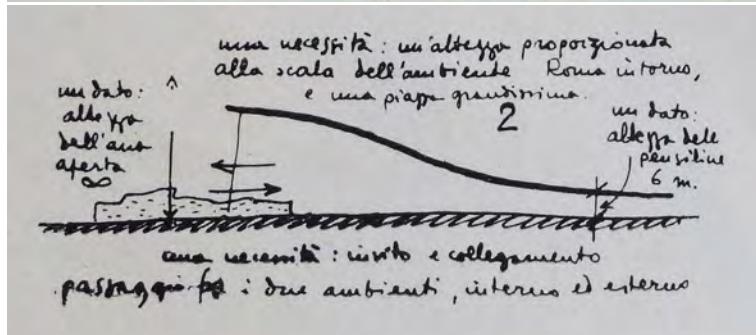 una necessità: un'altezza proporzionata
alla scala dell'ambiente Roma intorno,
e una piazza grandissima.
2
un dato:
altezza
dell'aria
aperta
∞
un dato:
altezza delle
pensiline
6 m.
una necessità: invito e collegamento
passaggio fra i due ambienti, interno ed esterno